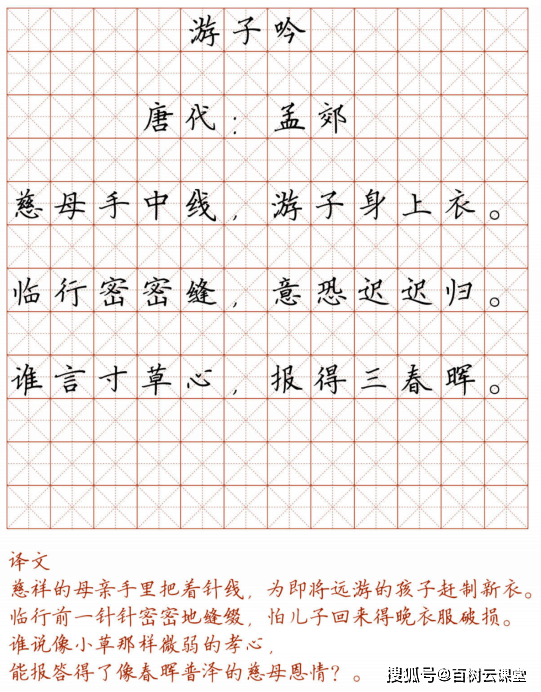 游子吟
唐代：孟郊
慈母手中线，游子身上衣。
临行密密缝，意恐迟迟归。
谁言寸草心，报得三春晖。
译文
慈祥的母亲手里把着针线，为即将远游的孩子赶制新衣。
临行前一针针密密地缝缀，怕儿子回来得晚衣服破损。
谁说像小草那样微弱的孝心，
能报答得了像春晖普泽的慈母恩情？。
搜狐号@百树云课堂